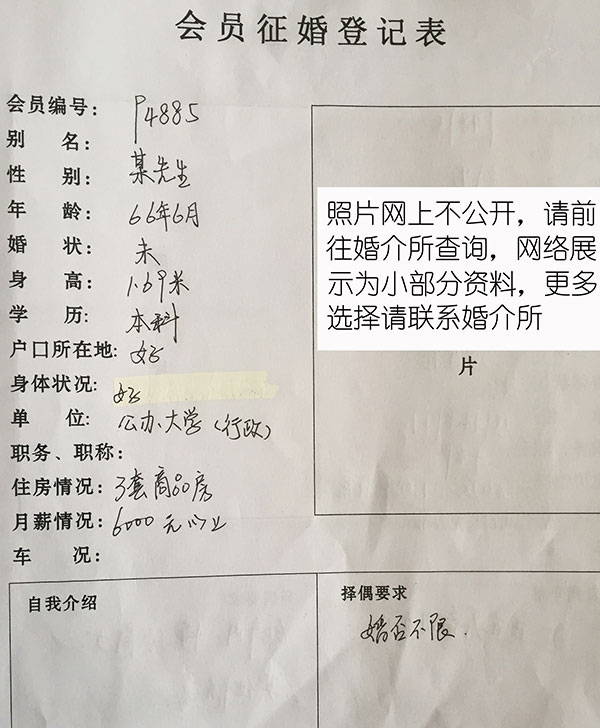 会员征婚登记表
会员编号: P4885
别 名: 某先生
性 别:
年 龄: 66年6月
婚 状: 未
身 高: 1.69米
学 历: 本科
户口所在地: 好
身体状况: 好
单 位: 公办大学(行政)
职务、职称:
住房情况: 3套商品房
月薪情况: 6000元以上
车 况:
照片网上不公开，请前
往婚介所查询，网络展
示为小部分资料，更多
选择请联系婚介所
片
自我介绍
择偶要求
婚否不限.